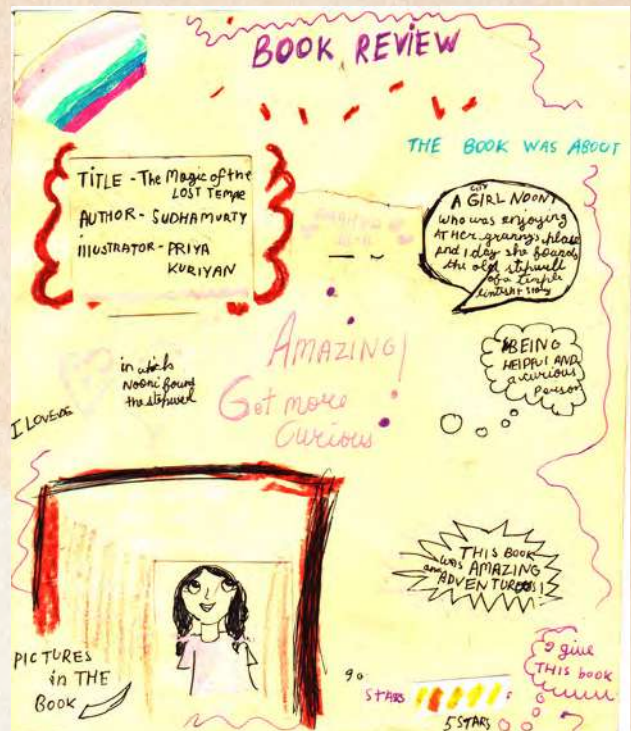 BOOK REVIEW
THE BOOK WAS ABOUT
TITLE - The Magic of the
LOST TEMPLE
AUTHOR - SUDHAMURTY
ILLUSTRATOR - PRIYA
KURIYAN
A GIRL NOONI
who was enjoying
AT Her granny's place
And 1 day she found
the old stepwell
of a temple
in which
Nooni found
the stepwell
I LOVED
AMAZING!
Get more
Curious
BEING
HELPFUL AND
a curious
person
THIS BOOK
was AMAZING
and ADVENTUROUS!
PICTURES
in THE
BOOK
I give
THIS book
STARS
5 STARS